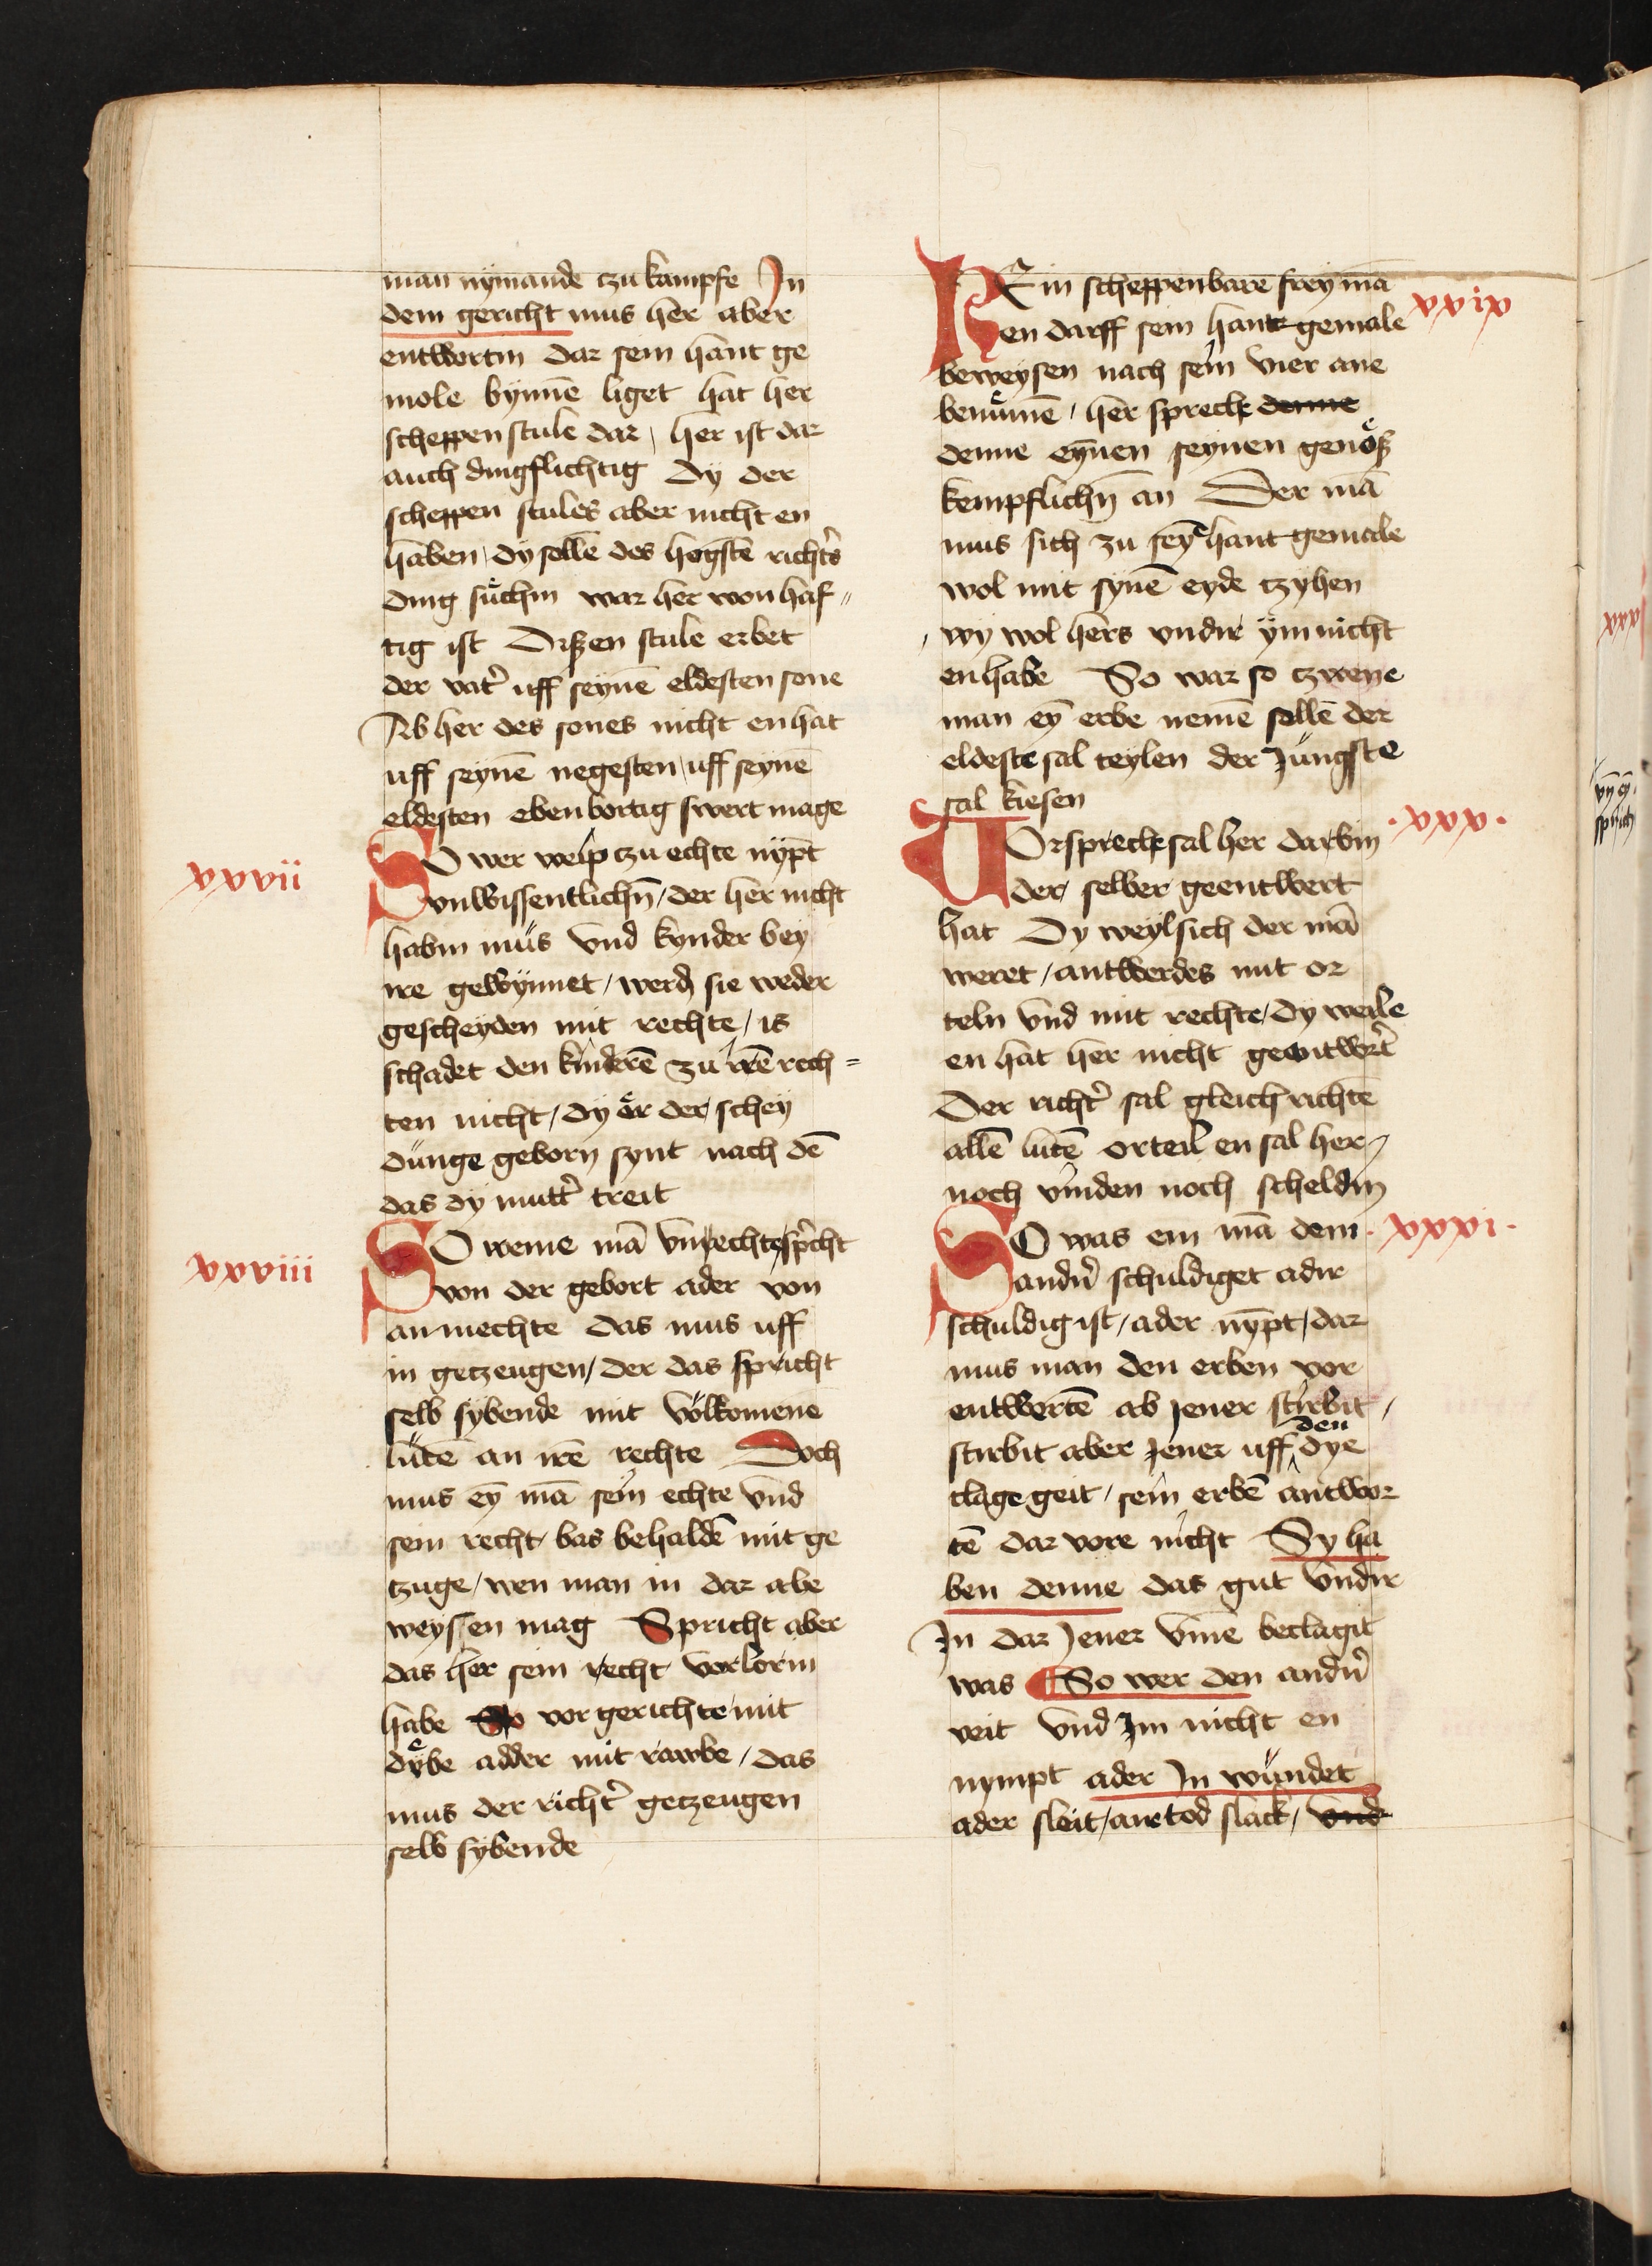 man nymande czu kampfe In
dem gericht mus her aber
entwortin dar sein hant ge
mole bynnē liget hat her
scheppen stule dar / her ist dar
auch dingflichtig Dy der
scheppen stules aber nicht en
haben / dy sollē des hogstē richt's
ding suͤchin war her won haf//
tig ist Dißen stule erbet
der vat' uff seynē eldesten sone
Ab her des sones nicht en hat
uff seynē negesten / uff seynē
eldesten ebenbortig swert mage
xxvii
SO wer weip czu echte nÿpt
vnwissentlichn̄ / der her nicht
habin mus vnd kynder bey
ire gewÿnnet / werdn sie weder
gescheyden mit rechte / is
schadet den kinderē zu irē rech=
ten nicht / dÿ eͤr der schey
dunge geborn synt nach dē
das dÿ mutt' treit
xxviii
SO weme mā vnrechte sp'cht
von der gebort ader von
anmechte das mus uff
in getzeugen / der das spricht
selb sybende mit volkomene
lutē an irē rechte Doch
mus eȳ mā sein echte vnd
sein recht bas behaldē mit ge
tzuge / wen man in dar abe
weyssen mag Spricht aber
das her sein recht vorlorin
habe So vor gerichte mit
dyͤbe adder mit rawbe / das
mus der richt' getzeugen
selb sybende
KEin scheppenbarē freÿ mā
xxix
en darff sein hant gemale
beweysen nach sein vier ane
benuͤmē / her sprech denne
denne eȳnen seynen genoͤß
kempflichn̄ an Der mā
mus sich zu seyē hant gemale
wol mit synē eyde tzyhen
/ wy wol hers vndir ÿm nicht
enhabe So war so czwene
man eȳ erbe nemē sollē der
eldeste sal teylen der Jungste
sal kiesen
.xxx.
VOrsprech sal her darbin
der selber geentwert
hat Dy weyl sich der mā
weret / antwerdes mit or
teln vnd mit rechte / dy weile
en hat her nicht geentwort'
Der richt' sal gleich richtē
allē lutē orteil en sal her /
noch vinden noch scheldin
.xxxi.
SO was ein mā dem
andn' schuldiget adir
schuldig ist / ader nȳpt / dar
mus man den erben vor
entwertē ab jener stirbit /
den
stirbit aber Jener uff dye
clage geit / sein erbē antwor
tē dar vore nicht Sy ha
ben denne das gut vndir
In dar Jener vmē beclagit
was So wer den andn'
veit vnd Im nicht en
nympt ader In wundet
ader sleit / ane tod slack / vnd